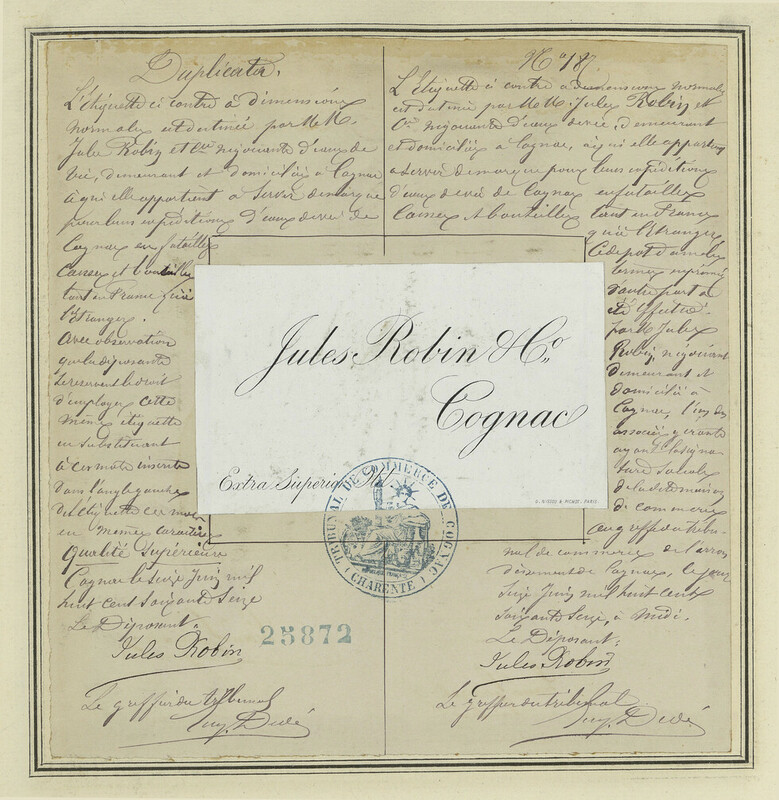 Duplicata.
L'étiquette ci contre à dimensions
normales est destinée par M.M.
Jules Robin et Cie négociants d'eaux de
vie, demeurant et domiciliés à Cognac
à qui elle appartient à servir de marque
pour leurs expéditions d'eaux de vie de
Cognac en futailles
Caisses et bouteilles
tant en France qu'à
l'étranger.
Avec observation
que la déposante
se réservent le droit
d'employer cette
même étiquette
en substituant
à ces mots inscrits
dans l'angle gauche
de l'étiquette ces mots
en mêmes caractères
Qualité Supérieure
Cognac le seize Juin mil
huit cent soixante seize
Le Déposant:
Jules Robin
Le greffier du tribunal
Eug. Dedé
25872
N° 187.
L'Etiquette ci contre à dimensions normales
est destinée par M.M. Jules Robin et
Cie négociants d'eaux de vie, demeurant
et domiciliés à Cognac, à qui elle appartient
à servir de marque pour leurs expéditions
d'eaux de vie de Cognac en futailles
Caisses et bouteilles tant en France
qu'à l'Etranger
Ce dépôt d'un des
termes exprimés
d'autre part a
été effectué
par M. Jules
Robin, négociant
demeurant et
domicilié à
Cognac, l'un des
associés gérants
ayant la signa-
ture sociale
de la dite maison
de commerce
au greffe du tribu-
nal de commerce de l'arron-
dissement de Cognac, le jour
seize Juin mil huit cent
soixante seize, à midi.
Le Déposant:
Jules Robin
Le greffier du tribunal
Eug. Dedé
Jules Robin & Co.
Cognac
Extra Supérior Old
TRIBUNAL DE COMMERCE DE COGNAC
CHARENTE